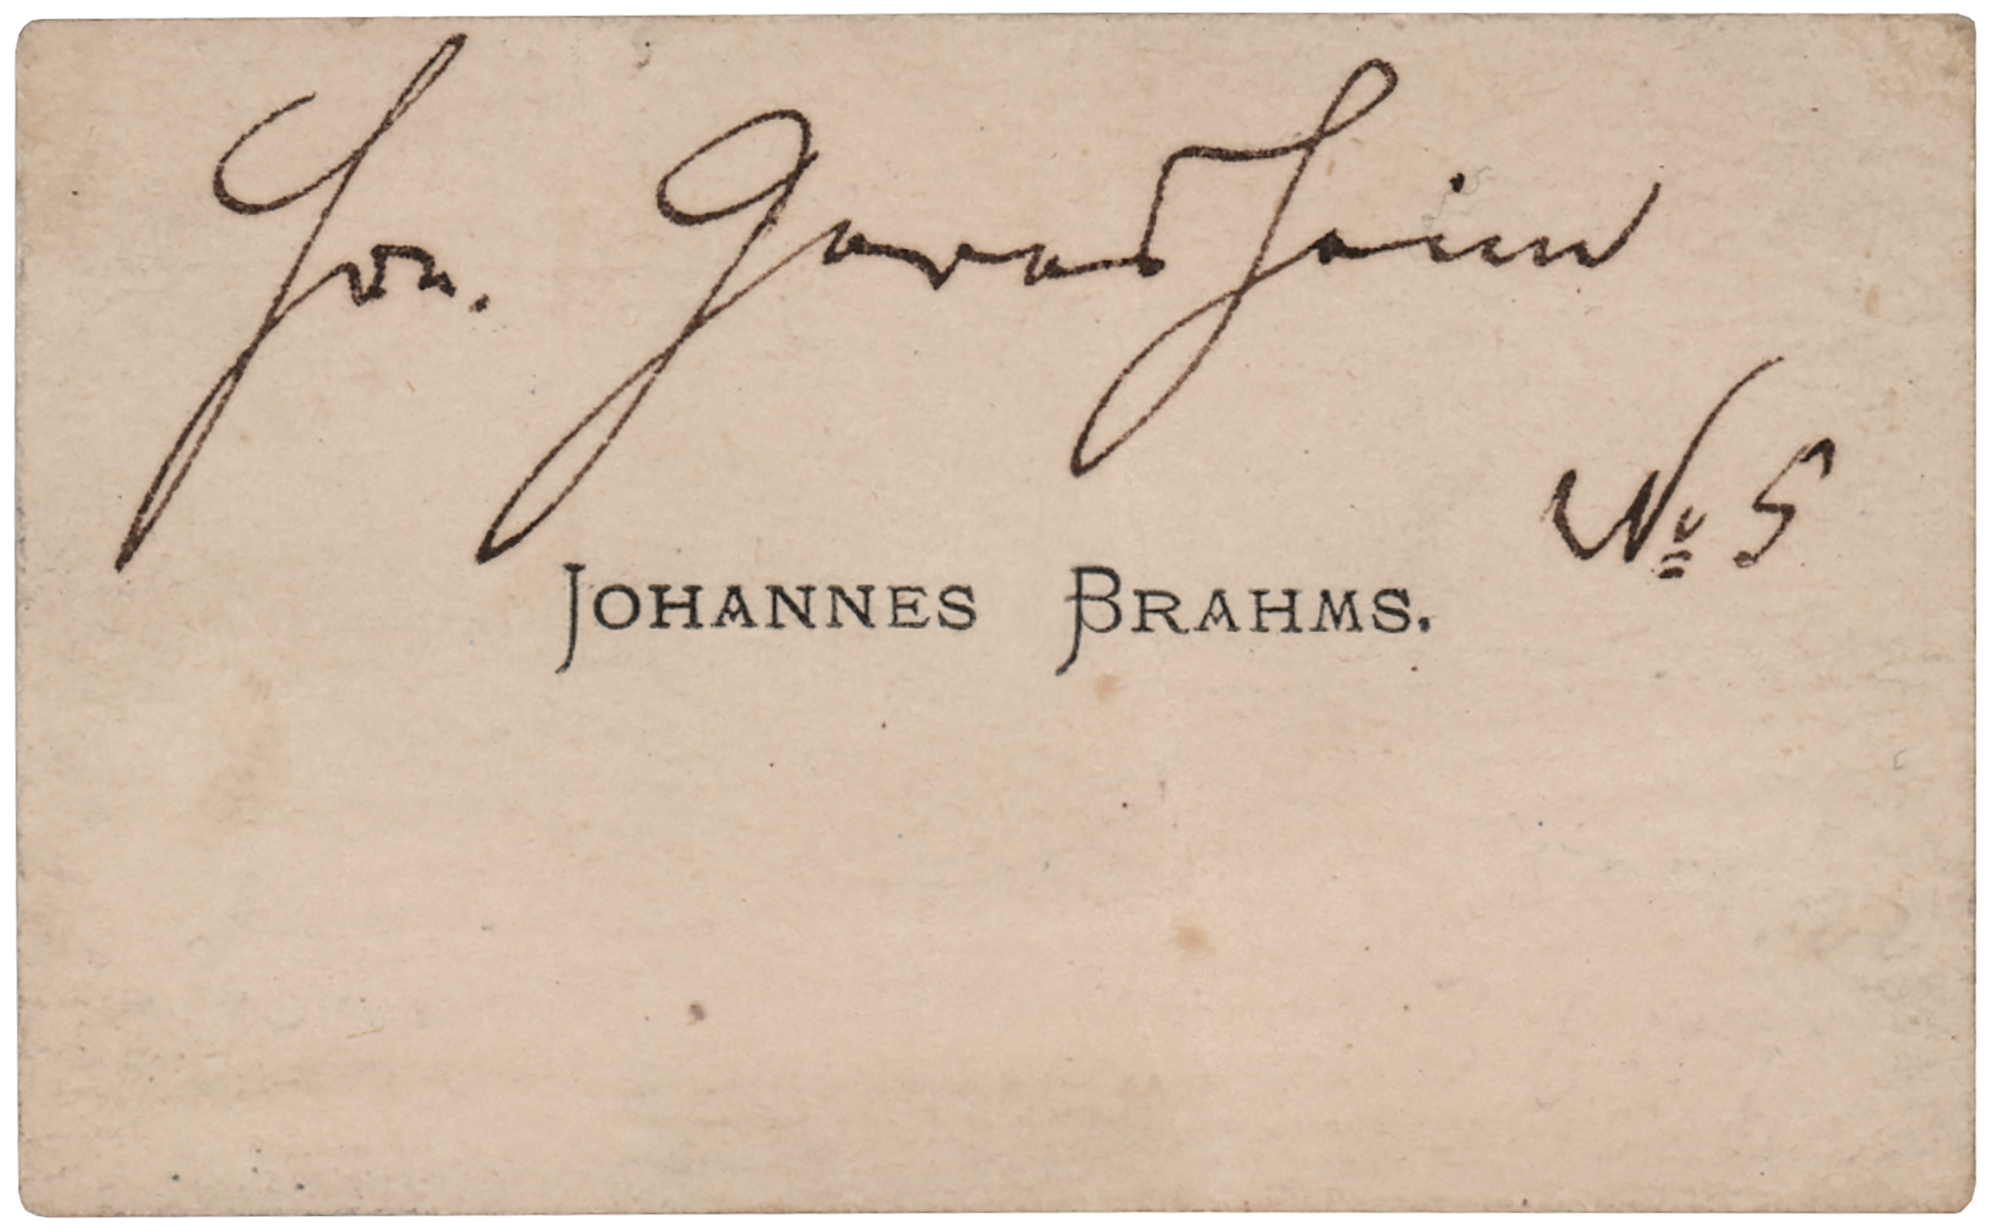 Hrn. Gernsheim
No 5
JOHANNES BRAHMS.